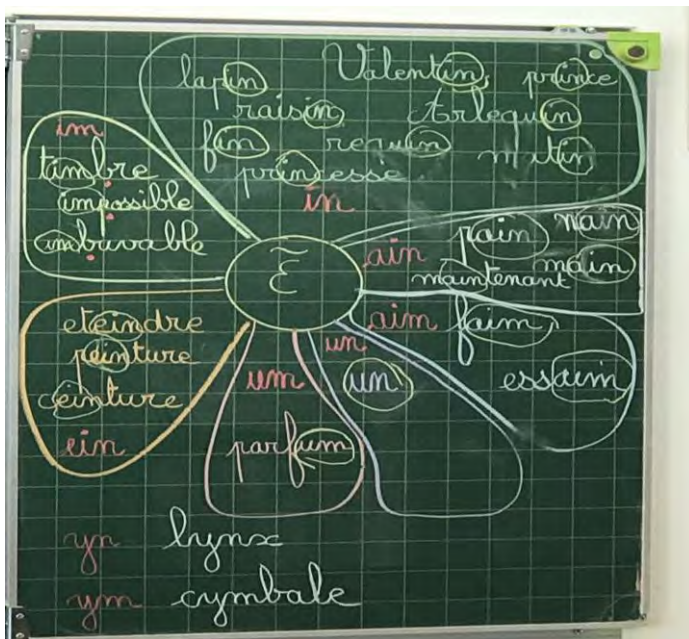 lapin Valentin, prince
raisin Arlequin
fin requin mutin
princesse
in
im
timbre
impossible
imbuvable
ain pain nain
maintenant main
Ẽ
aim faim
essaim
un
un
um
parfum
eteindre
peinture
ceinture
ein
yn lynx
ym cymbale